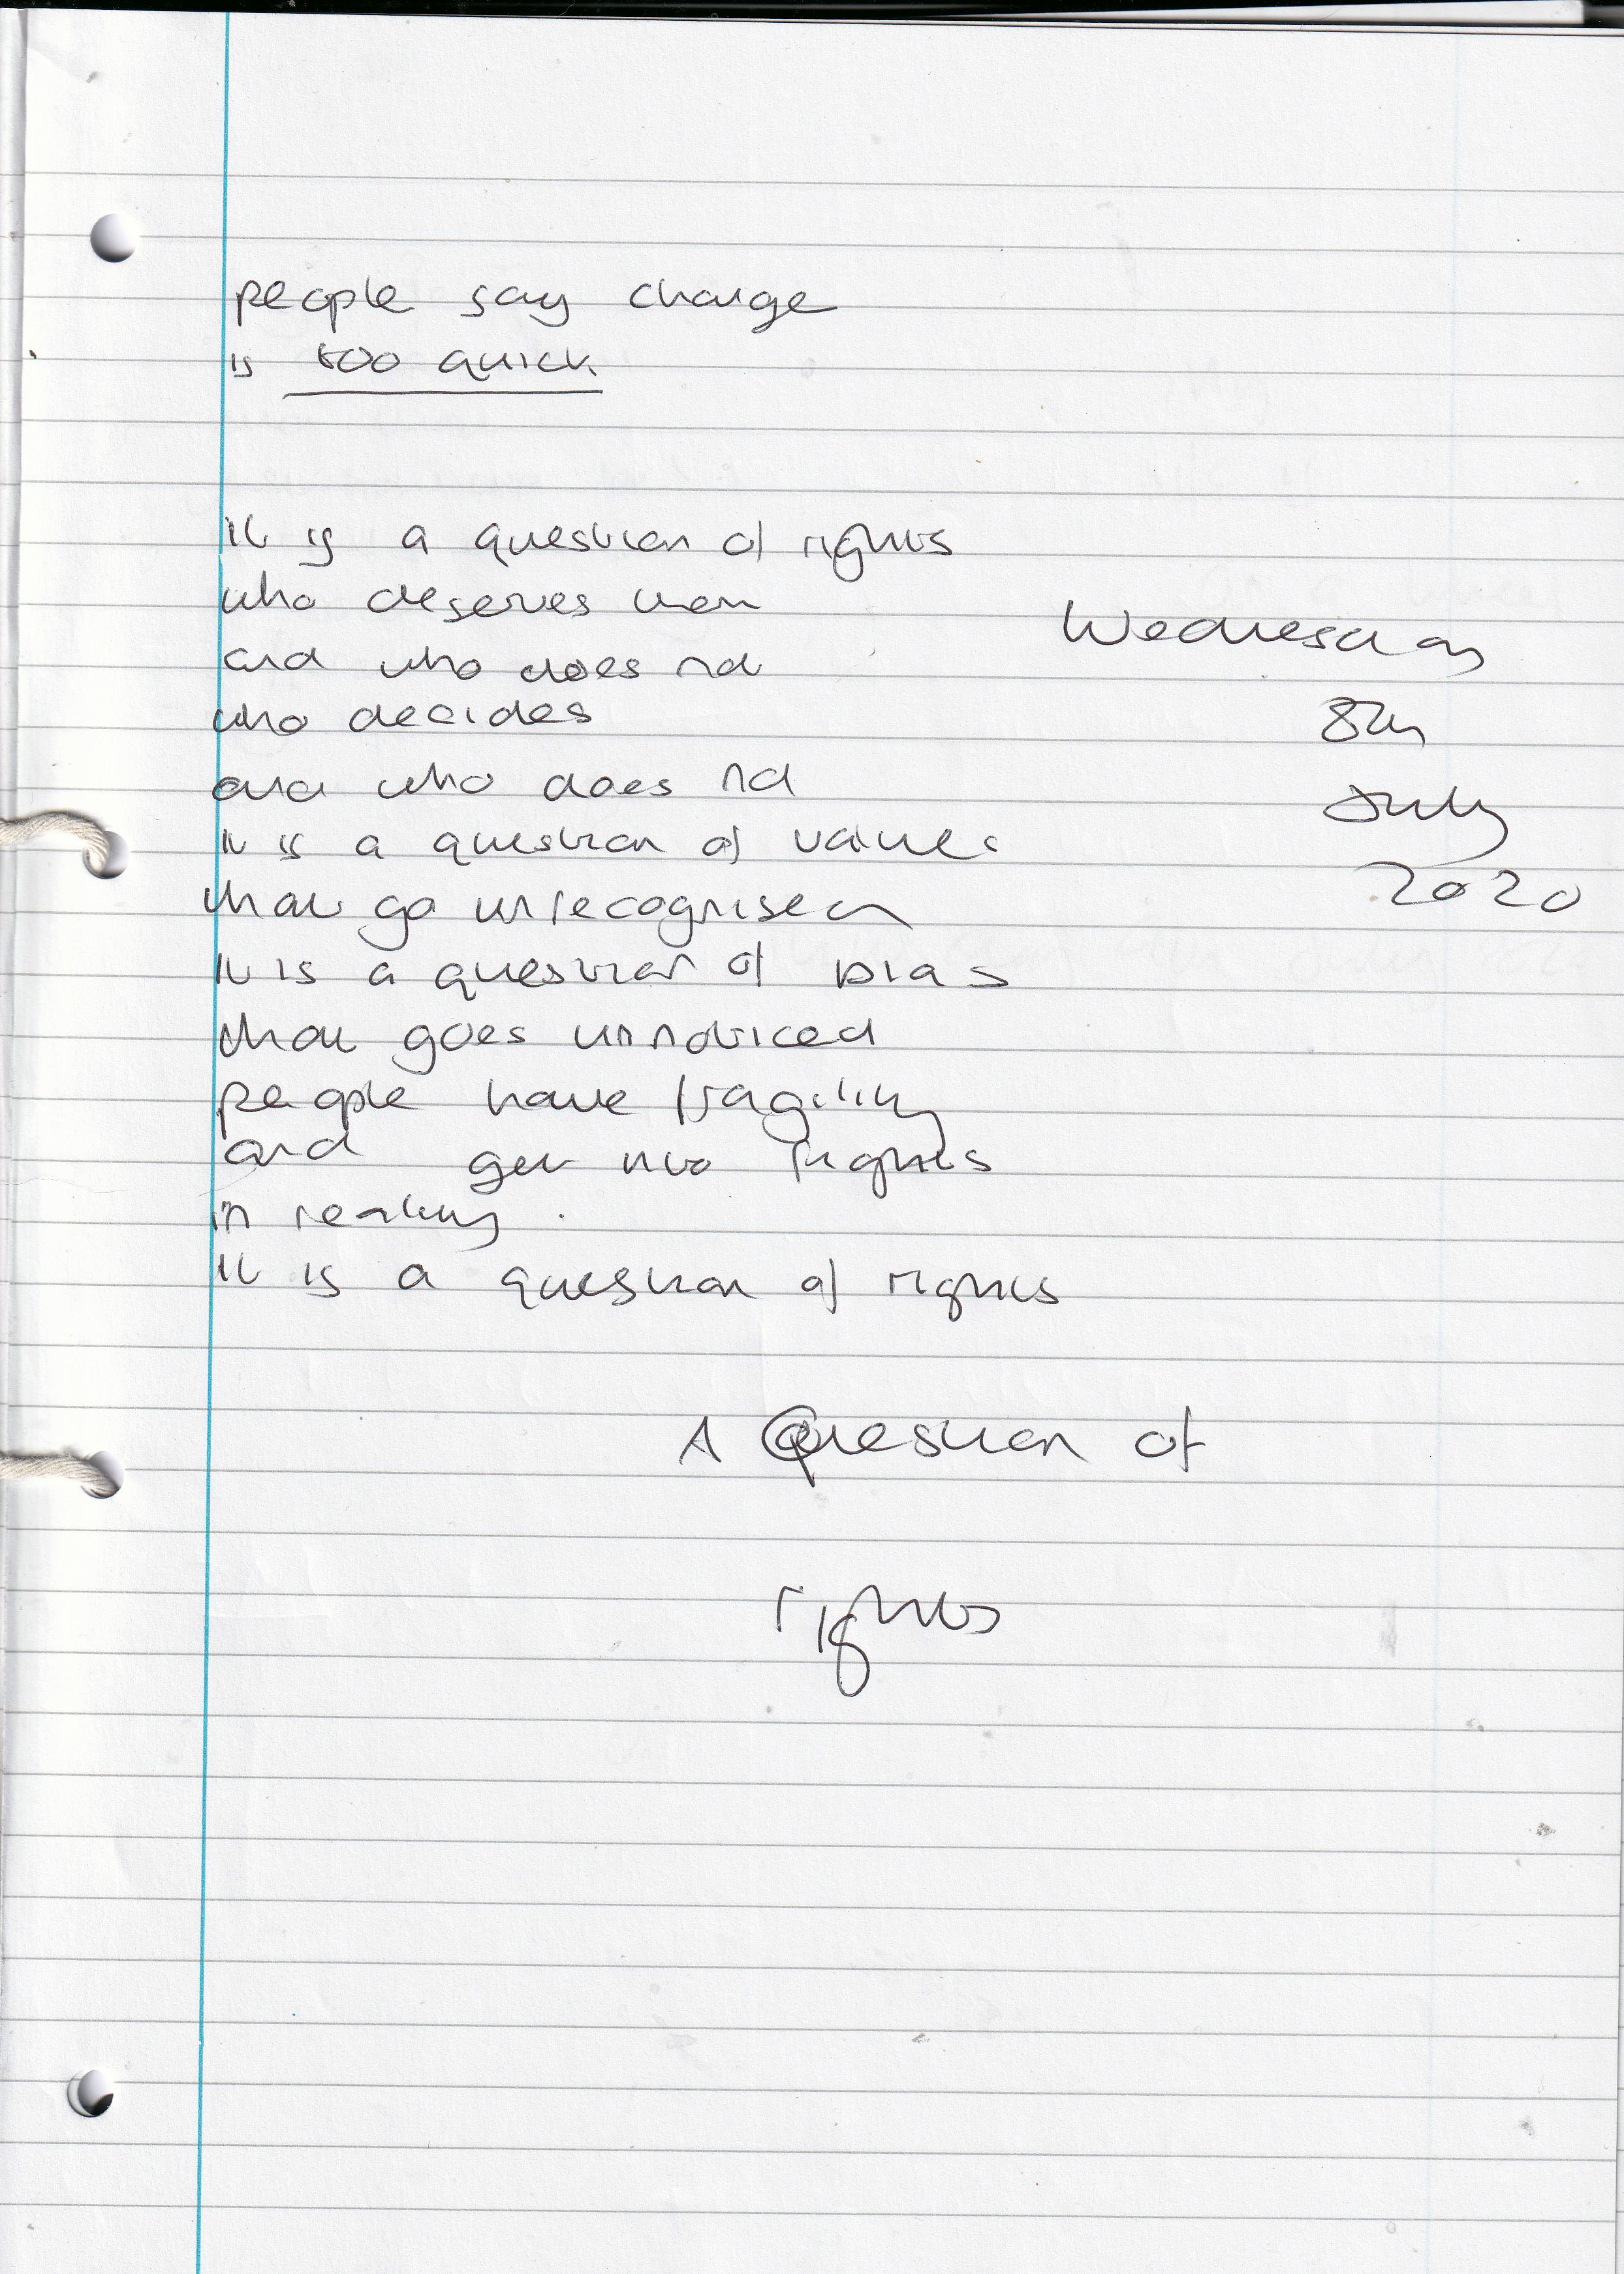 people say change
is too quick
it is a question of rights
who deserves them
and who does not
who decides
and who does not
it is a question of values
that go unrecognised
it is a question of bias
that goes unnoticed
people have fragility
and get into fights
in reality.
it is a question of rights
Wednesday
8th
July
2020
A Question of
rights